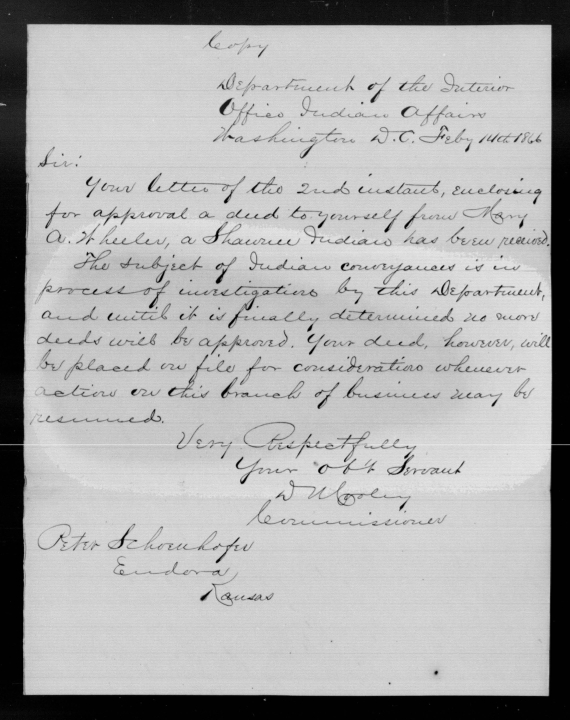 Copy
Department of the Interior
Office Indian Affairs
Washington D.C. Feby 14th 1866
Sir:
Your letter of the 2nd instant, enclosing
for approval a deed to yourself from Mary
A. Wheeler, a Shawnee Indian has been received.
The subject of Indian conveyances is in
process of investigation by this Department,
and until it is finally determined no more
deeds will be approved. Your deed, however, will
be placed on file for consideration whenever
action on this branch of business may be
resumed.
Very Respectfully
Your obt Servant
D N Cooley
Commissioner
Peter Schoenhofer
Eudora
Kansas